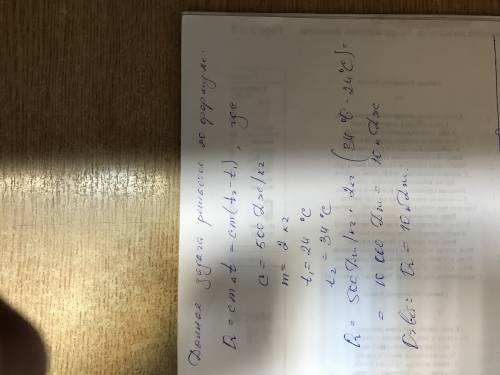 Данная задача решается по формуле:
Q = cmΔt = cm(t₂-t₁), где
c = 500 Дж/кг
m = 2 кг
t₁ = 24 °C
t₂ = 34 °C
Q = 500 Дж/кг · 2кг (34 °C - 24 °C) =
= 10 000 Дж = 10 кДж
Ответ: Q = 10 кДж.